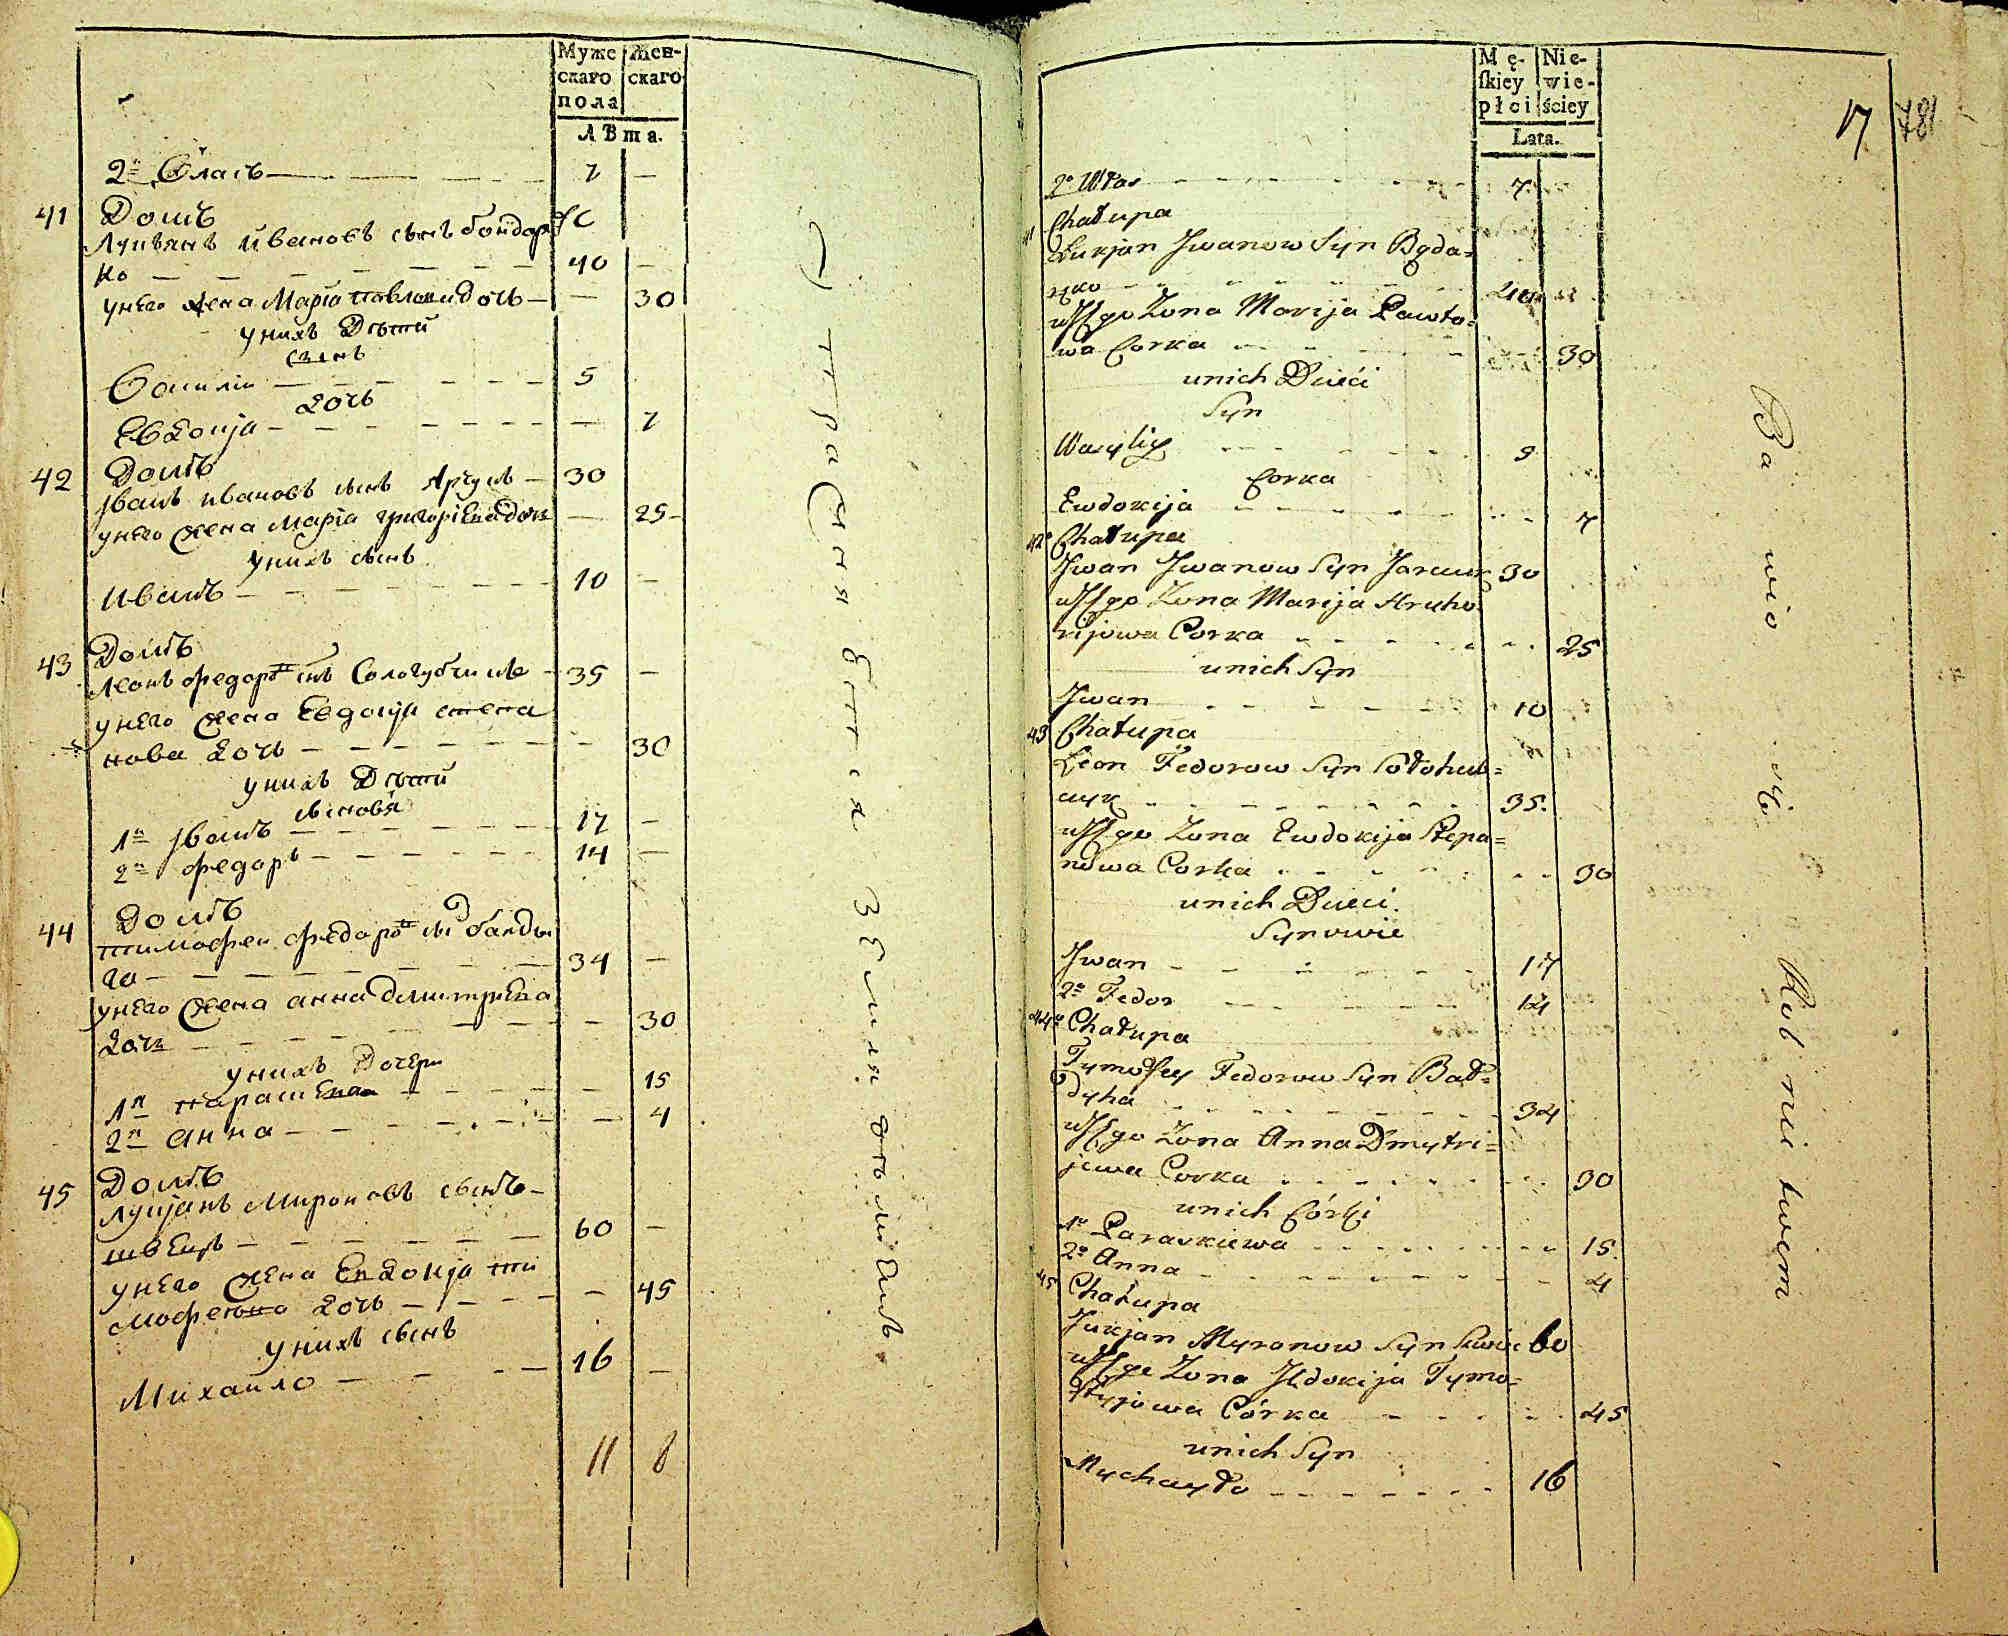 Муже скаго пола
Жен- скаго
лѣта.
2й Власъ 7 —
41 Домъ
Лукьянъ Ивановъ сынъ бондар
ко 40 —
унего жена Марія павлова дочь — 30
унихъ Дѣти
сынъ
Василій 5
дочь
Евдокія — 7
42 Домъ
Іванъ ивановъ сынъ 30
унего жена марія григоріева дочь — 25
унихъ сынъ
Иванъ 10 —
43 Домъ
Леонъ федоровъ снъ Сологубчикъ 35 —
унего жена Евдокія степа
нова дочь — 30
унихъ Дѣти
сыновя
1й Іванъ 17 —
2й федоръ 14 —
44 Домъ
тимофей федоровъ сн балды
га 34 —
унего жена анна димитріева
дочь — 30
унихъ Дочери
1я парасковея 15
2я анна — 4
45 Домъ
Лукіянъ Мироновъ сынъ
швецъ 60 —
унего жена Евдокія ти
мофеева дочь — 45
унихъ сынъ
Михаило 16 —
11 8
земля
Mę- skiey płci
Nie- wie- ściey
Lata.
17 78
2o Włas 7
41 Chałupa
Łukjan Jwanow Syn Boda=
rzko 40
Zona Marija Pawło=
wa Corka 30
unich Dzieci
Syn
Wasyliy 5
Corka
Ewdokija 7
42o Chałupa
Jwan Jwanow Syn 30
Zona Marija Hryho
rijowa Corka 25
unich Syn
Jwan 10
43 Chałupa
Leon Fedorow Syn Sołohub=
czyk 35.
Zona Ewdokija Stepa=
nowa Corka 30
unich Dzieci.
Synowie
Jwan 17
2o Fedor 14
44o Chałupa
Tymofey Fedorow Syn Bał=
dyha 34
Zona Anna Dmytri=
jewa Corka 30
unich Córki
1o Paraskiewa 15.
2o Anna 4
45 Chałupa
Łukjan Myronow Syn Szwiec 60
Zona Jewdokija Tymo=
fiyjowa Córka 45
unich Syn
Mychayło 16